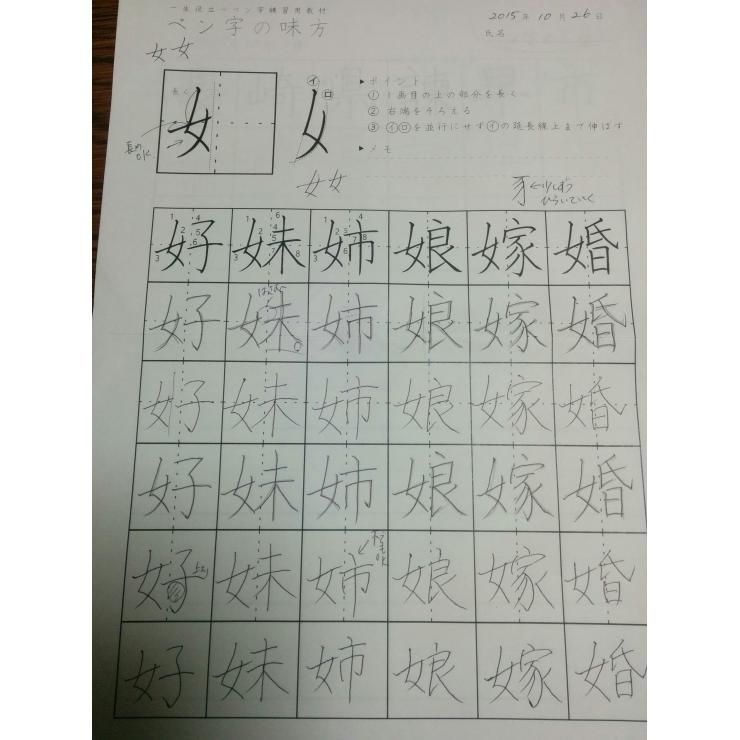 一生役立つペン字練習用教材
ペン字の味方
2015年10月26日
氏名
女女
長く
女
長め
OK
イ
ロ
女女
▶ポイント
① 1画目の上の部分を長く
② 右端をそろえる
③ イロを並行にせずイの延長線上まで伸ばす
▶メモ
好 妹 姉 娘 嫁 婚
好 妹 姉 娘 嫁 婚
好 妹 姉 娘 嫁 婚
好 妹 姉 娘 嫁 婚
好 妹 姉 娘 嫁 婚
好 妹 姉 娘 嫁 婚